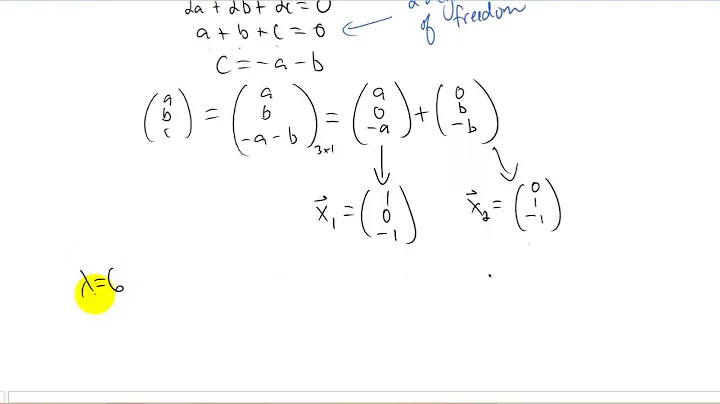 2a + 2b + 2c = 0
a + b + c = 0
of freedom
c = -a - b
(a b c) = (a b -a - b) 3x1 = (a 0 -a) + (0 b -b)
x⃗1 = (1 0 -1) x⃗2 = (0 1 -1)
λ = 6